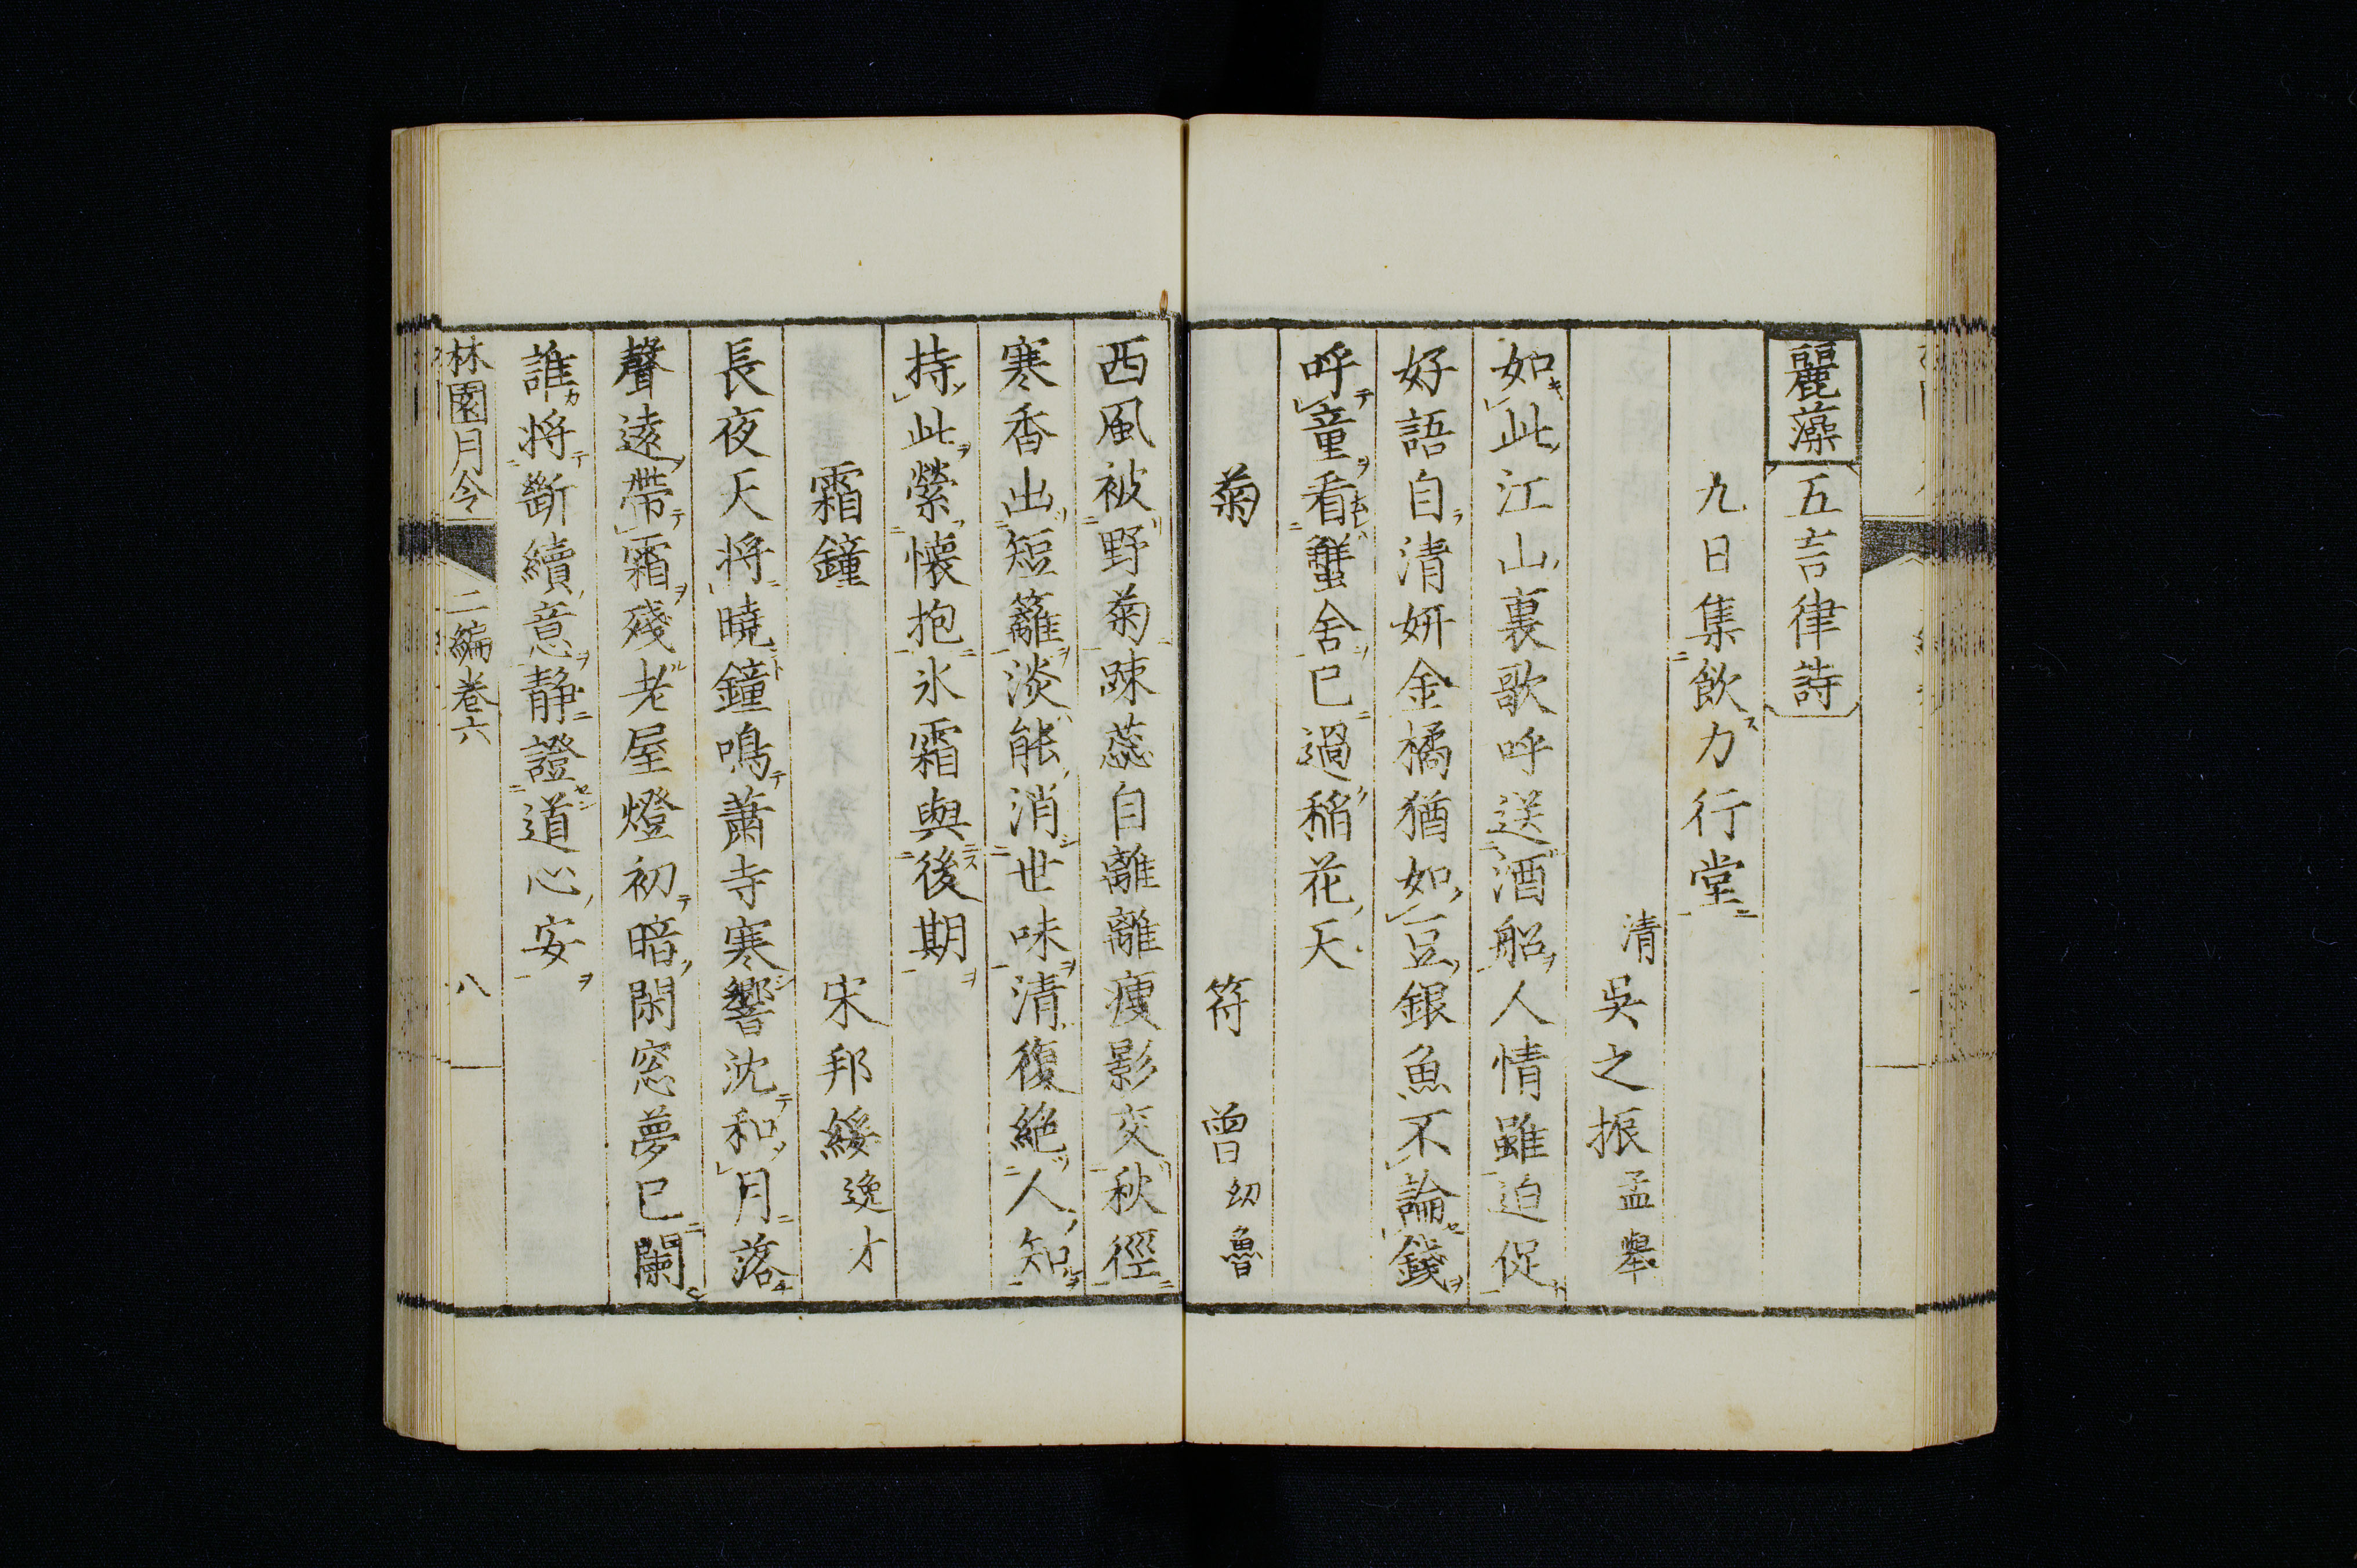 麗藻 五言律詩
九日集飲力行堂
清 吳之振 孟舉
如此江山裏歌呼送酒船人情雖迫促
好語自清妍金橘猶如豆銀魚不論錢
呼童看蟹舍已過稻花天
菊 符曾 幼魯
西風被野菊踈蕊自離離瘦影交秋徑
寒香出短籬淡能消世味清復絶人知
持此縈懐抱氷霜與後期
霜鐘 宋邦綏 逸才
長夜天将曉鐘鳴蕭寺寒響沈和月落
聲遠帶霜殘老屋燈初暗閑窓夢已闌
誰将斷續意静證道心安
林園月令 二編卷六 八